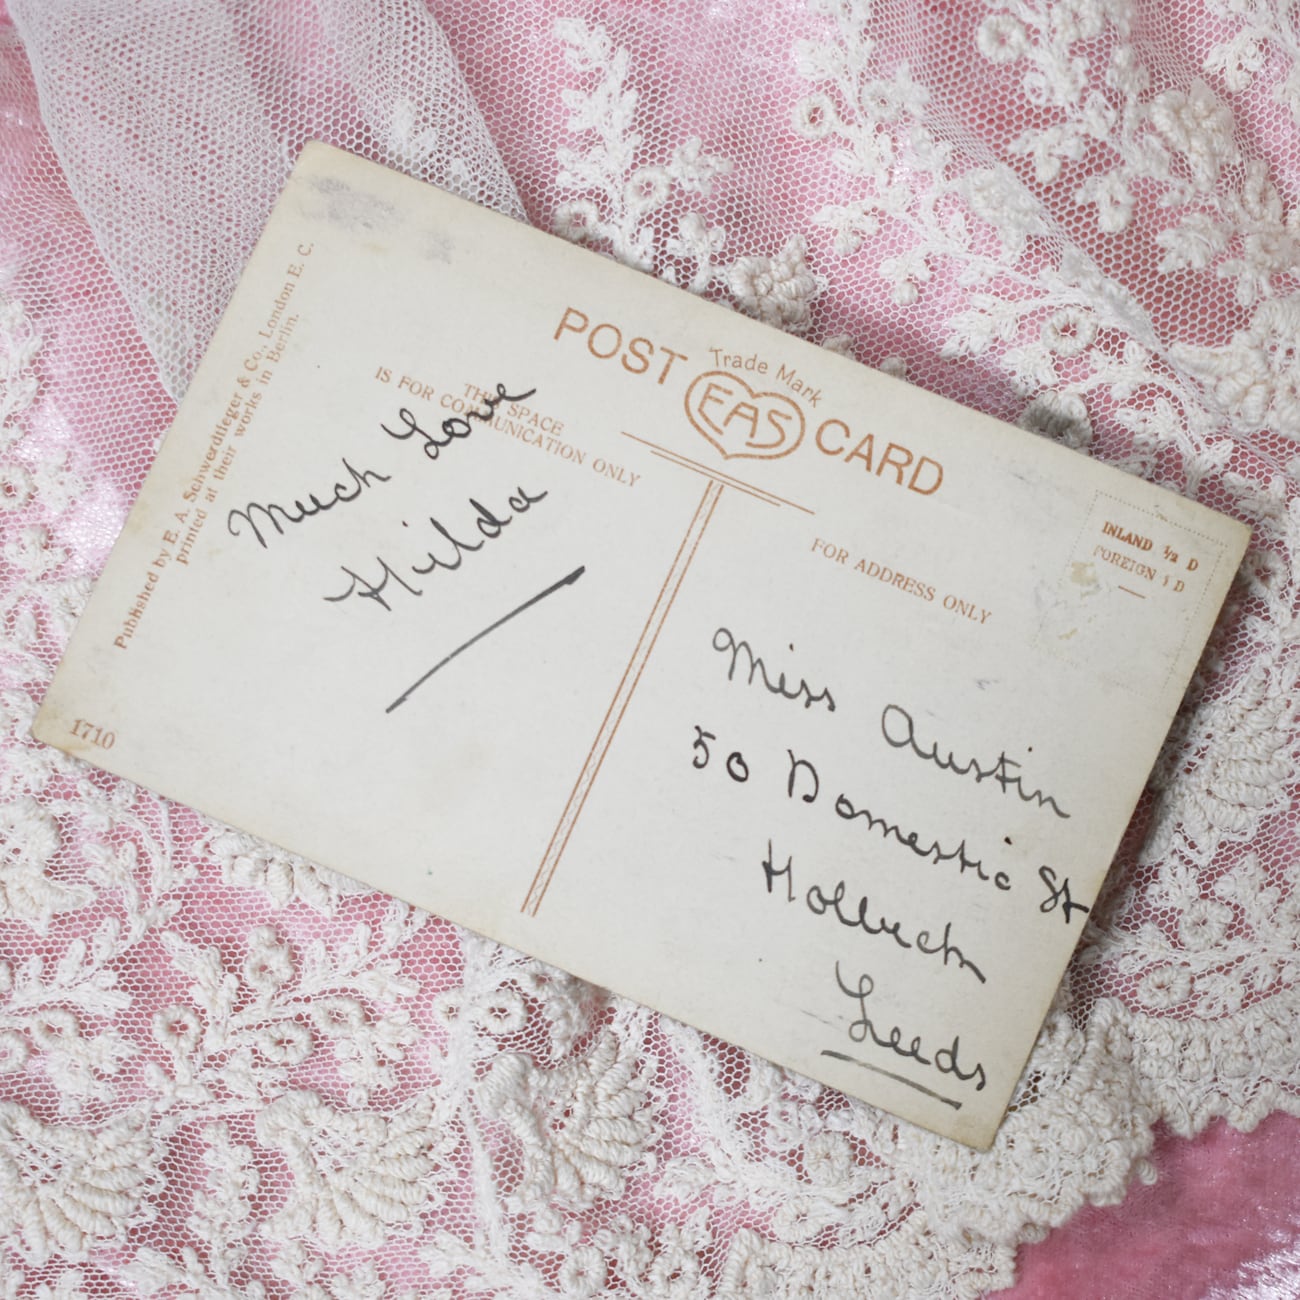 POST CARD
Trade Mark
EAS
THIS SPACE
IS FOR COMMUNICATION ONLY
Much Love
Hilda
Published by E. A. Schwerdtfeger & Co., London E. C.
printed at their works in Berlin.
1710
INLAND ½ D
FOREIGN 1 D
FOR ADDRESS ONLY
Miss Austin
50 Domestic St
Holbech
Leeds